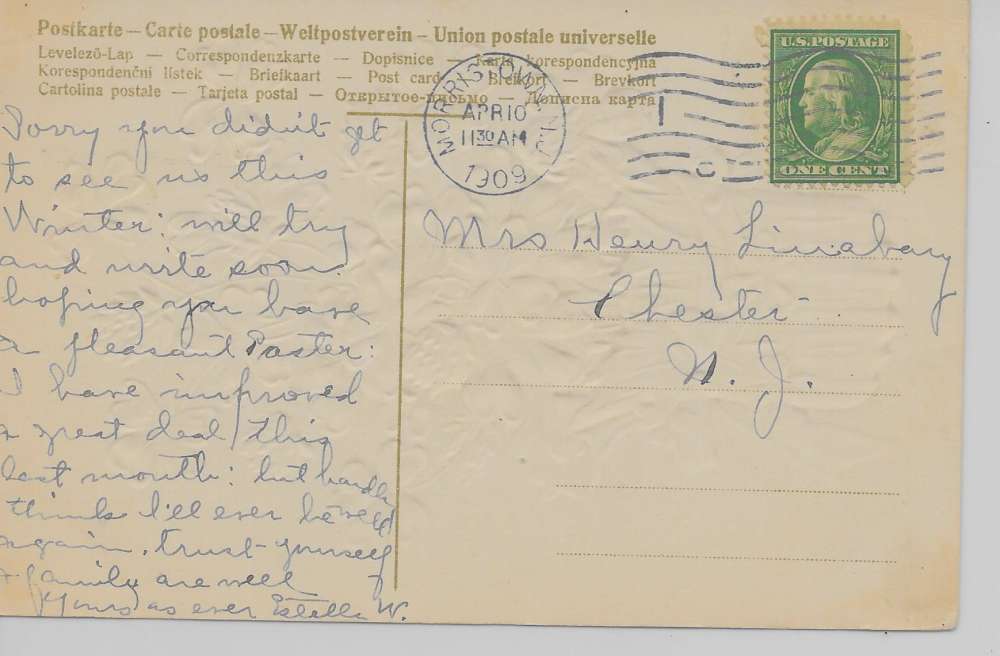 Postkarte — Carte postale — Weltpostverein — Union postale universelle
Levelező-Lap — Correspondenzkarte — Dopisnice — Karta korespondencyjna
Korespondenční lístek — Briefkaart — Post card — Brefkort — Brevkort
Cartolina postale — Tarjeta postal — Открытое письмо — Дописна карта
U.S. POSTAGE
ONE CENT
MORRISTOWN, N.J.
APR 10
11 30 AM
1909
Sorry you didn't get
to see us this
Winter: will try
and write soon.
hoping you have
a pleasant Easter:
I have improved
a great deal this
last month: but hardly
think I'll ever be well
again. trust yourself
& family are well
Yours as ever Estella W.
Mrs Henry Linabary
Chester
N. J.